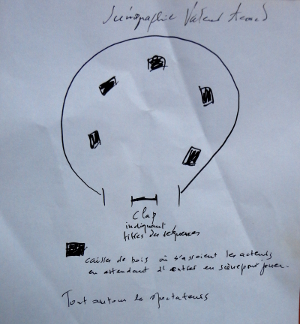 Scénographie Valent
Clap
indiquant
titres des séquences
caisses de bois où s'assoient les acteurs
en attendant d'entrer en scène pour jouer.
Tout autour les spectateurs